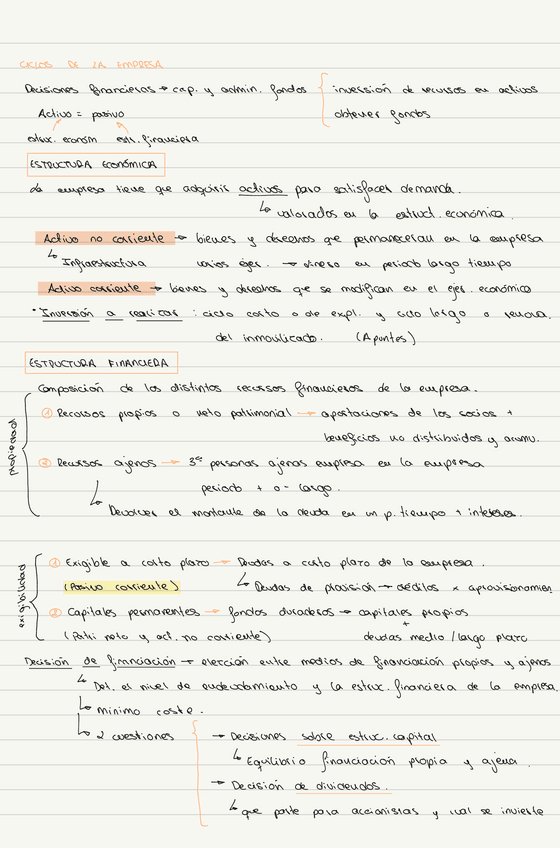 CICLOS DE LA EMPRESA
Decisiones financieras → cap. y admin. fondos { inversión de recursos en activos
Activo = pasivo obtener fondos
estruc. económ estr. financiera
ESTRUCTURA ECONÓMICA
La empresa tiene que adquirir activos para satisfacer demanda.
↳ valorados en la estruct. económica.
Activo no corriente → bienes y derechos que permanecerán en la empresa
↳ Infraestructura varios ejer. → dinero en periodo largo tiempo
Activo corriente → bienes y derechos que se modifican en el ejer. económico
· Inversión a realizar : ciclo corto o de expl. y ciclo largo o renova.
del inmovilizado. (Apuntes)
ESTRUCTURA FINANCIERA
Composición de los distintos recursos financieros de la empresa.
propiedad
① Recursos propios o neto patrimonial → aportaciones de los socios +
beneficios no distribuidos y acumu.
② Recursos ajenos → 3as personas ajenas empresa en la empresa
periodo + o - largo.
↳ Devolver el montante de la deuda en un p. tiempo + intereses.
exigibilidad
① Exigible a corto plazo → Deudas a corto plazo de la empresa.
(Pasivo corriente) ↳ Deudas de provisión → créditos x aprovisionamien
② Capitales permanentes → fondos duraderos → capitales propios
+
(Patri neto y act. no corriente) deudas medio/largo plazo
Decisión de financiación → elección entre medios de financiación propios y ajenos
↳ Det. el nivel de endeudamiento y la estruc. financiera de la empresa.
↳ mínimo coste.
↳ 2 cuestiones → Decisiones sobre estruc. capital
↳ Equilibrio financiación propia y ajena.
→ Decisión de dividendos.
↳ que parte para accionistas y cual se invierte